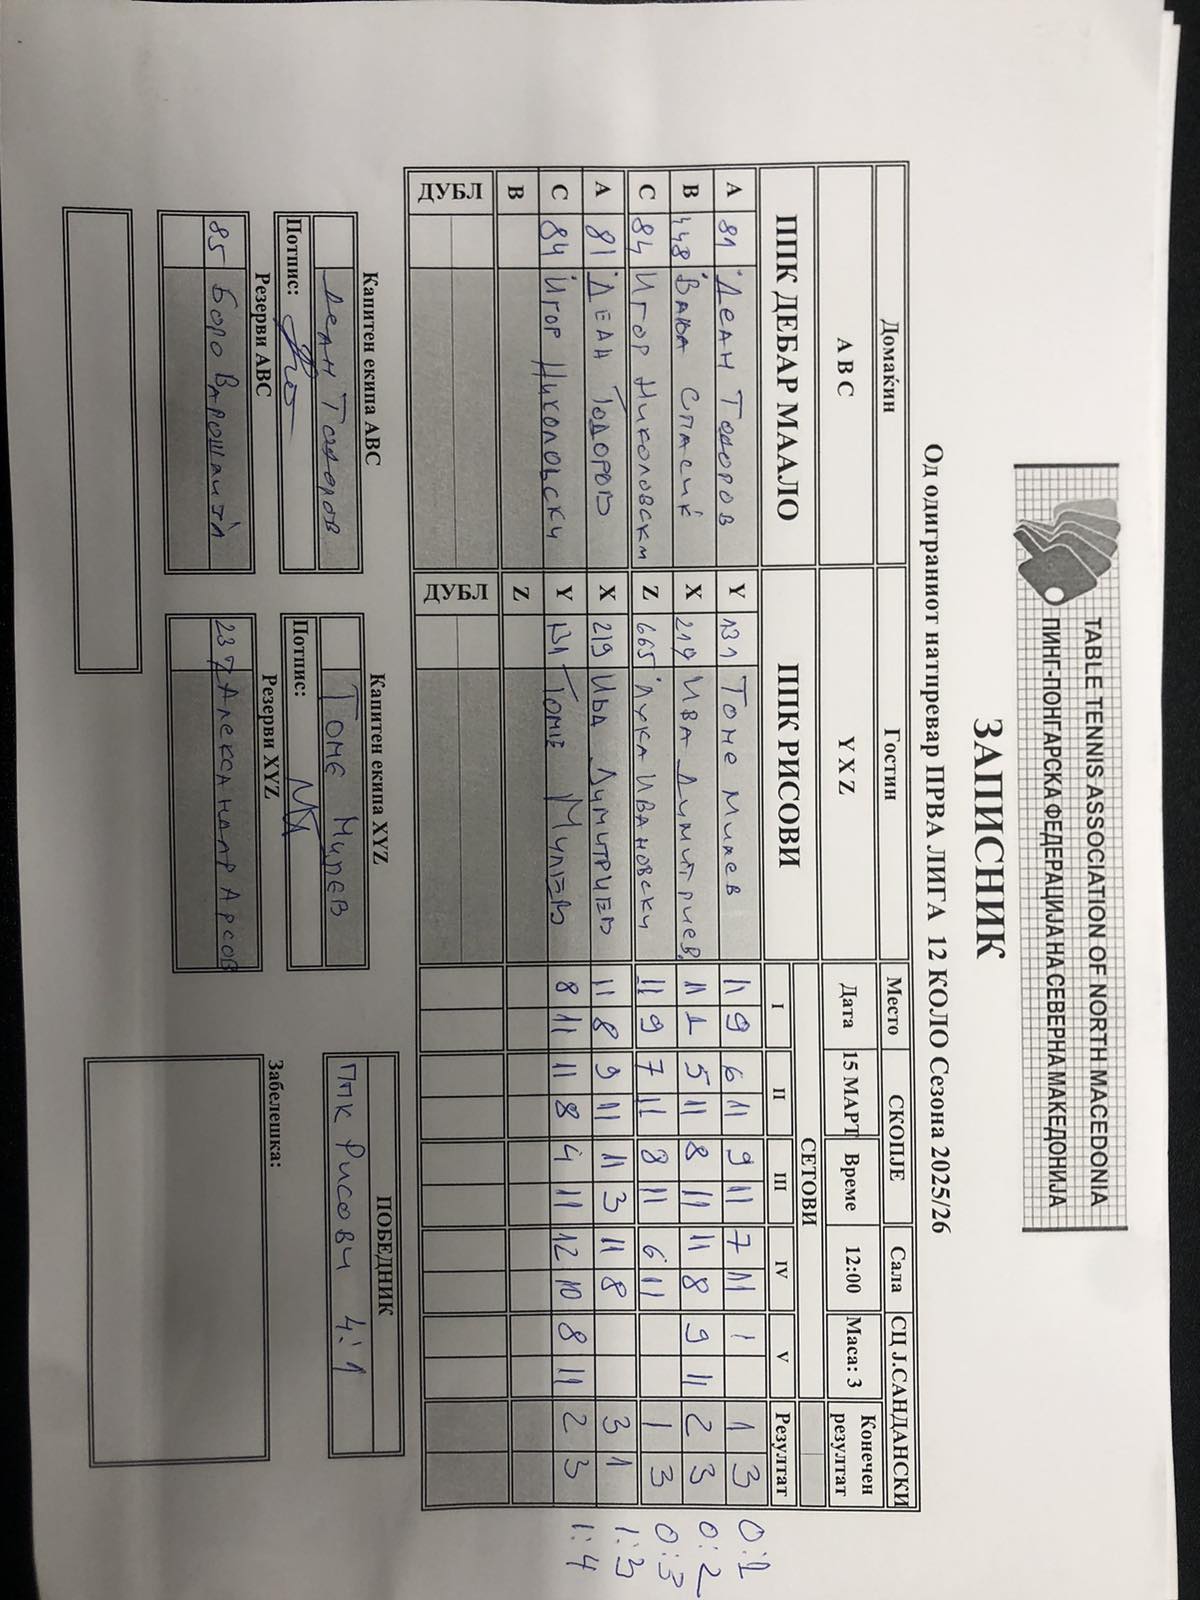 TABLE TENNIS ASSOCIATION OF NORTH MACEDONIA
ПИНГ-ПОНГАРСКА ФЕДЕРАЦИЈА НА СЕВЕРНА МАКЕДОНИЈА
ЗАПИСНИК
Од одиграниот натпревар ПРВА ЛИГА 12 КОЛО Сезона 2025/26
Домаќин Гостин Место СКОПЈЕ Сала СЦ Ј.САНДАНСКИ
A B C Y X Z Дата 15 МАРТ Време 12:00 Маса: 3 Конечен резултат
ППК ДЕБАР МААЛО ППК РИСОВИ СЕТОВИ
I II III IV V Резултат
A 81 Деан Тодоров Y 131 Томе Милев 11 9 6 11 9 11 7 11 1 1 3 0:1
B 448 Вања Спасиќ X 219 Ива Димитриев 11 1 5 11 8 11 11 8 9 11 2 3 0:2
C 84 Игор Николовски Z 665 Лука Ивановски 11 9 7 11 8 11 6 11 1 3 0:3
A 81 Деан Тодоров X 219 Ива Димитриев 11 8 9 11 11 3 11 8 3 1 1:3
C 84 Игор Николовски Y 131 Томе Милев 8 11 11 8 4 11 12 10 8 11 2 3 1:4
B Z
ДУБЛ ДУБЛ
Капитен екипа ABC Капитен екипа XYZ ПОБЕДНИК
Деан Тодоров Томе Милев ППК Рисови 4:1
Потпис: Потпис:
Резерви ABC Резерви XYZ Забелешка:
85 Боро Варошлија 237 Александар Арсов